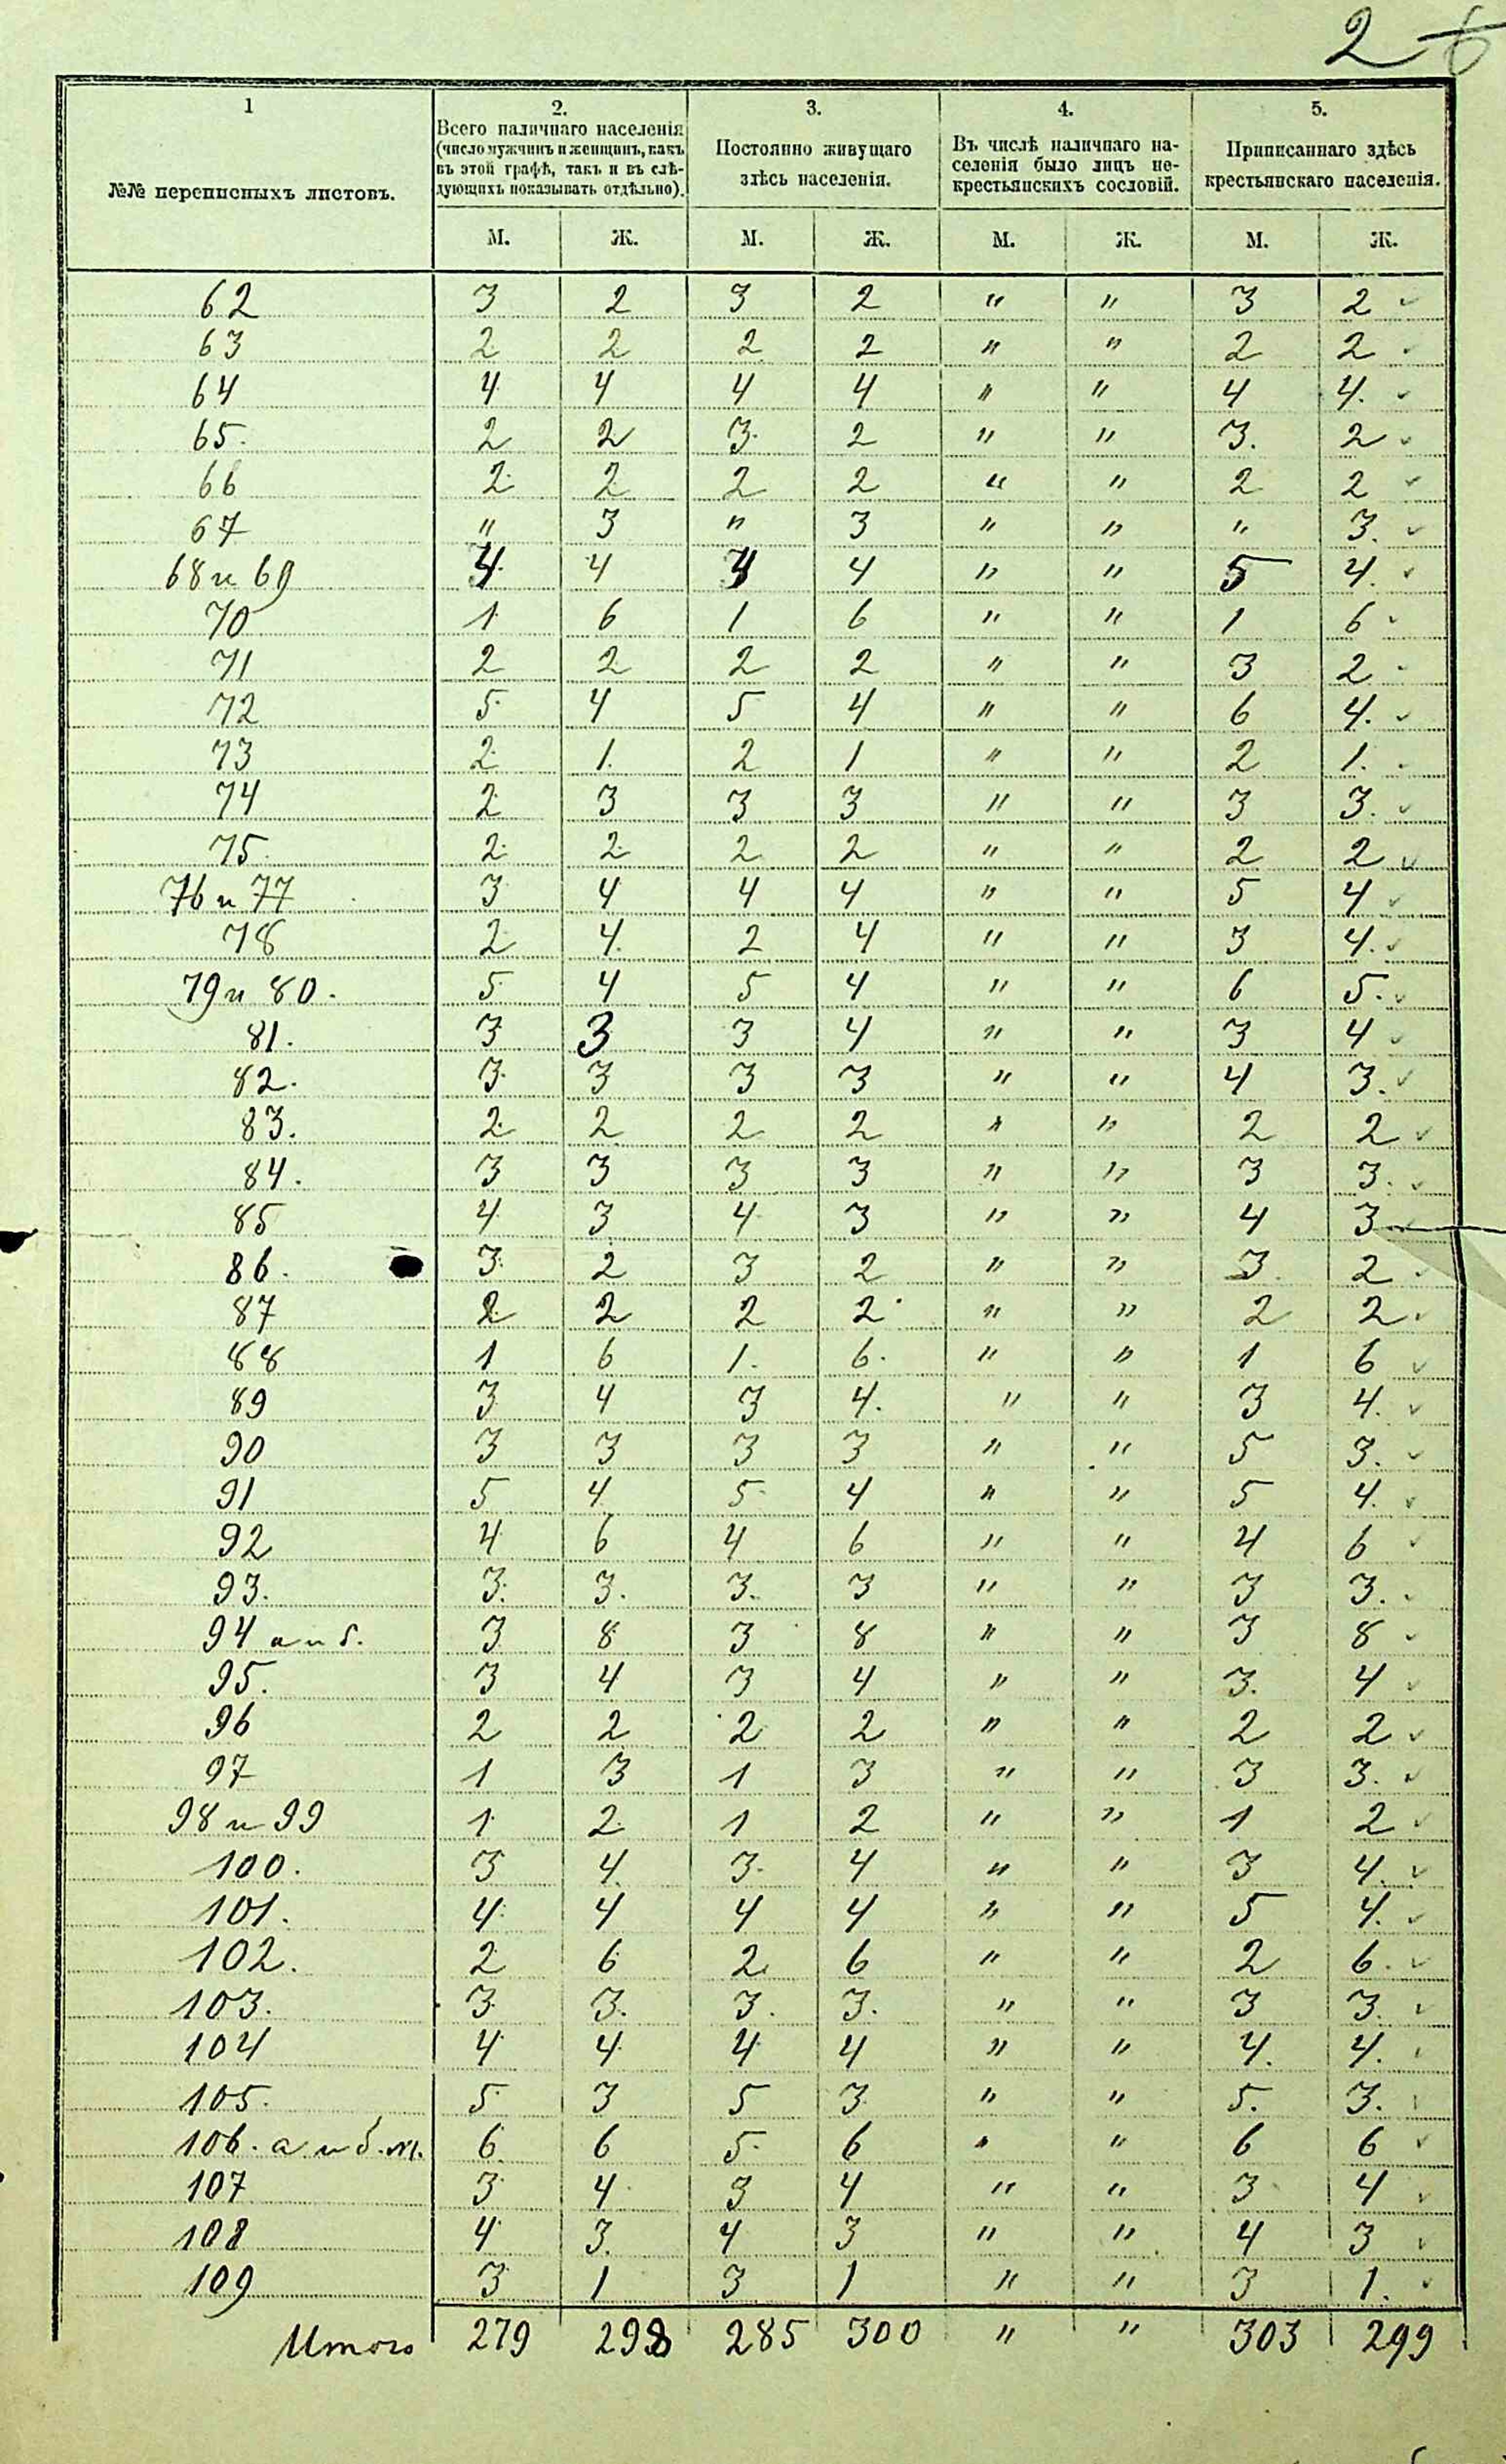 2
1
№№ переписныхъ листовъ.
2.
Всего наличнаго населенія
(число мужчинъ и женщинъ, какъ
въ этой графѣ, такъ и въ слѣ-
дующихъ показывать отдѣльно).
3.
Постоянно живущаго
здѣсь населенія.
4.
Въ числѣ наличнаго на-
селенія было лицъ не-
крестьянскихъ сословій.
5.
Приписаннаго здѣсь
крестьянскаго населенія.
М. Ж. М. Ж. М. Ж. М. Ж.
62 3 2 3 2 " " 3 2
63 2 2 2 2 " " 2 2
64 4 4 4 4 " " 4 4.
65. 2 2 3. 2 " " 3. 2
66 2 2 2 2 " " 2 2
67 " 3 " 3 " " " 3.
68 и 69 4 4 4 4 " " 5 4.
70 1 6 1 6 " " 1 6
71 2 2 2 2 " " 3 2
72 5 4 5 4 " " 6 4.
73 2 1. 2 1 " " 2 1.
74 2 3 3 3 " " 3 3.
75. 2 2 2 2 " " 2 2
76 и 77 3 4 4 4 " " 5 4
78 2 4. 2 4 " " 3 4.
79 и 80. 5 4 5 4 " " 6 5.
81. 3 3 3 4 " " 3 4
82. 3. 3 3 3 " " 4 3.
83. 2 2 2 2 " " 2 2
84. 3 3 3 3 " " 3 3.
85 4 3 4 3 " " 4 3
86. 3 2 3 2 " " 3 2
87 2 2 2 2 " " 2 2
88 1 6 1. 6. " " 1 6
89 3 4 3 4. " " 3 4.
90 3 3 3 3 " " 5 3.
91 5 4 5 4 " " 5 4.
92 4 6 4 6 " " 4 6
93. 3. 3. 3. 3 " " 3 3.
94 а и б. 3 8 3 8 " " 3 8
95. 3 4 3 4 " " 3. 4
96 2 2 2 2 " " 2 2
97 1 3 1 3 " " 3 3.
98 и 99 1 2 1 2 " " 1 2
100. 3 4 3. 4 " " 3 4.
101. 4 4 4 4 " " 5 4.
102. 2 6 2 6 " " 2 6.
103. 3 3. 3. 3. " " 3 3.
104 4 4 4 4 " " 4. 4.
105. 5 3 5 3 " " 5. 3.
106. а и б. 6 6 5. 6 " " 6 6
107 3 4 3 4 " " 3 4
108 4 3. 4 3 " " 4 3
109 3 1 3 1 " " 3 1.
Итого 279 298 285 300 " " 303 299